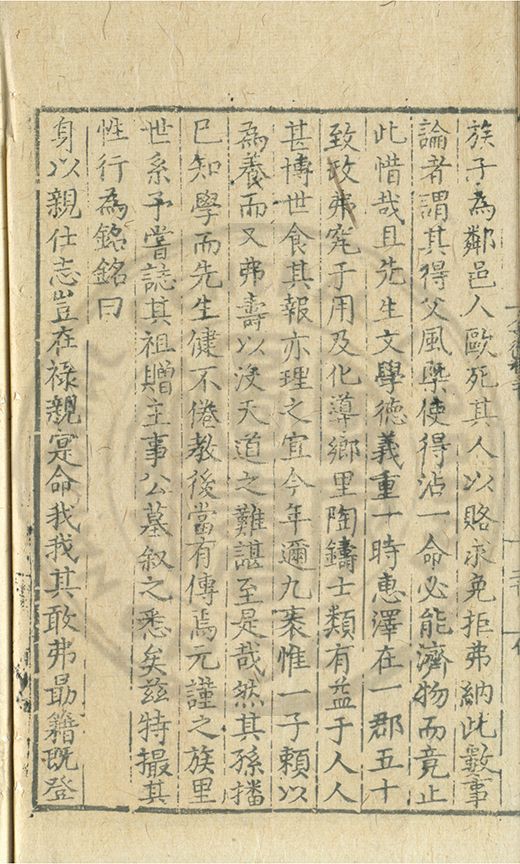 族子為鄰邑人歐死其人以賂求免拒弗納此數事
論者謂其得父風槩使得沾一命必能濟物而竟止
此惜哉且先生文學德義重一時惠澤在一郡五十
致政弗究于用及化導鄉里陶鑄士類有益于人人
甚博世食其報亦理之宜今年邇九袠惟一子賴以
為養而又弗壽以没天道之難諶至是哉然其孫播
已知學而先生健不倦教後當有傳焉元謹之族里
世系予嘗誌其祖贈主事公墓叙之悉矣兹特撮其
性行為銘銘曰
身以親仕志豈在禄親寔命我我其敢弗勗籍既登